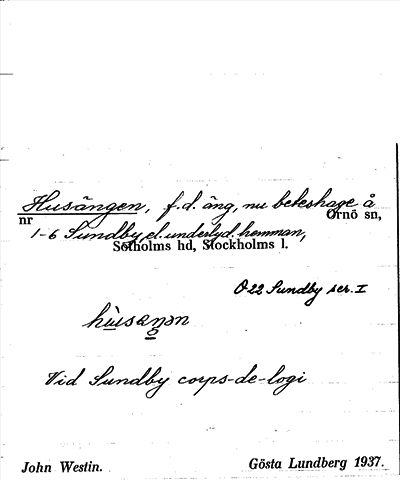 Husängen, f.d. äng, nu beteshage å
nr Ornö sn,
1-6 Sundby el. underlyd. hemman,
Sotholms hd, Stockholms l.
O 22 Sundby ser. I
Vid Sundby corps-de-logi
John Westin. Gösta Lundberg 1937.